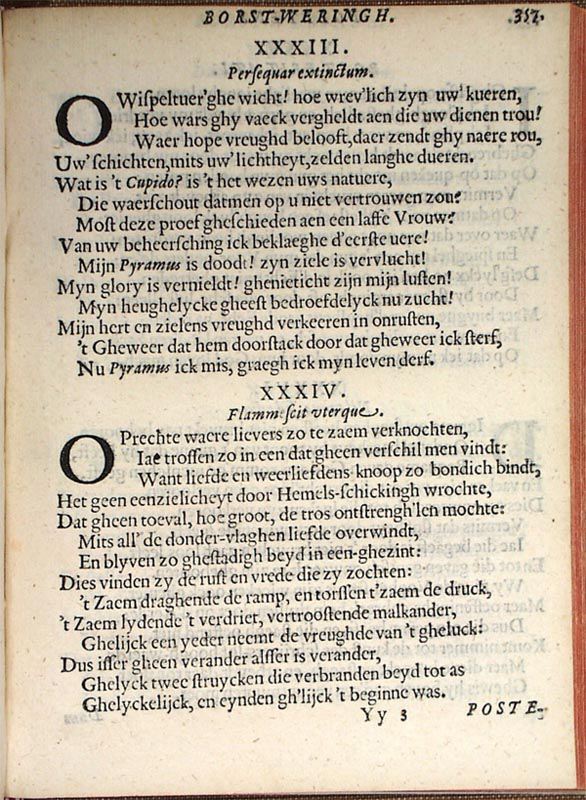 BORST-WERINGH. 357.
XXXIII.
Persequar extinctum.
O Wispeltuer'ghe wicht! hoe wrev'lich zyn uw' kueren,
Hoe wars ghy vaeck vergheldt aen die uw dienen trou!
Waer hope vreughd belooft, daer zendt ghy naere rou,
Uw' schichten, mits uw' lichtheyt, zelden langhe dueren.
Wat is 't Cupido? is 't het wezen uws natuere,
Die waerschout datmen op u niet vertrouwen zou?
Most deze proef gheschieden aen een laffe Vrouw?
Van uw beheersching ick beklaeghe d'eerste uere!
Mijn Pyramus is doodt! zyn ziele is vervlucht!
Myn glory is vernieldt! ghenieticht zijn mijn lusten!
Myn heughelycke gheest bedroefdelyck nu zucht!
Mijn hert en zielens vreughd verkeeren in onrusten,
't Gheweer dat hem doorstack door dat gheweer ick sterf,
Nu Pyramus ick mis, graegh ick myn leven derf.
XXXIV.
Flammescit uterque.
OPrechte waere lievers zo te zaem verknochten,
Iae trossen zo in een dat gheen verschil men vindt:
Want liefde en weerliefdens knoop zo bondich bindt,
Het geen eenzielicheyt door Hemels-schickingh wrochte,
Dat gheen toeval, hoe groot, de tros ontstrengh'len mochte:
Mits all' de donder-vlaghen liefde overwindt,
En blyven zo ghestadigh beyd in een-ghezint:
Dies vinden zy de rust en vrede die zy zochten:
't Zaem draghende de ramp, en torssen t'zaem de druck,
't Zaem lydende 't verdriet, vertroostende malkander,
Ghelijck een yeder neemt de vreughde van 't gheluck:
Dus isser gheen verander alsser is verander,
Ghelyck twee struycken die verbranden beyd tot as
Ghelyckelijck, en eynden gh'lijck 't beginne was.
Yy 3 POSTE-